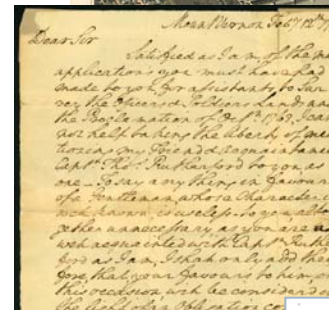 Mount Vernon Feby 12th 17
Dear Sir
Satisfied as I am of the ma
applications you must have had
made to you for assistants to Sur
vey the Officers & Soldiers Land und
the Proclamation of Octr 1763, I can
not help taking the liberty of men
tioning my Friend & acquaintance
Captn Thos. Rutherford to you as
one — To say any thing in favour
of a Gentleman whose Character is
well known, is useless to you, alto
gether unnecessary, as you are as
well acquainted with Captn Ruther
ford as I am, I shall only add there
fore, that your favours to him on
this occasion will be considered in
the light of an Obligation